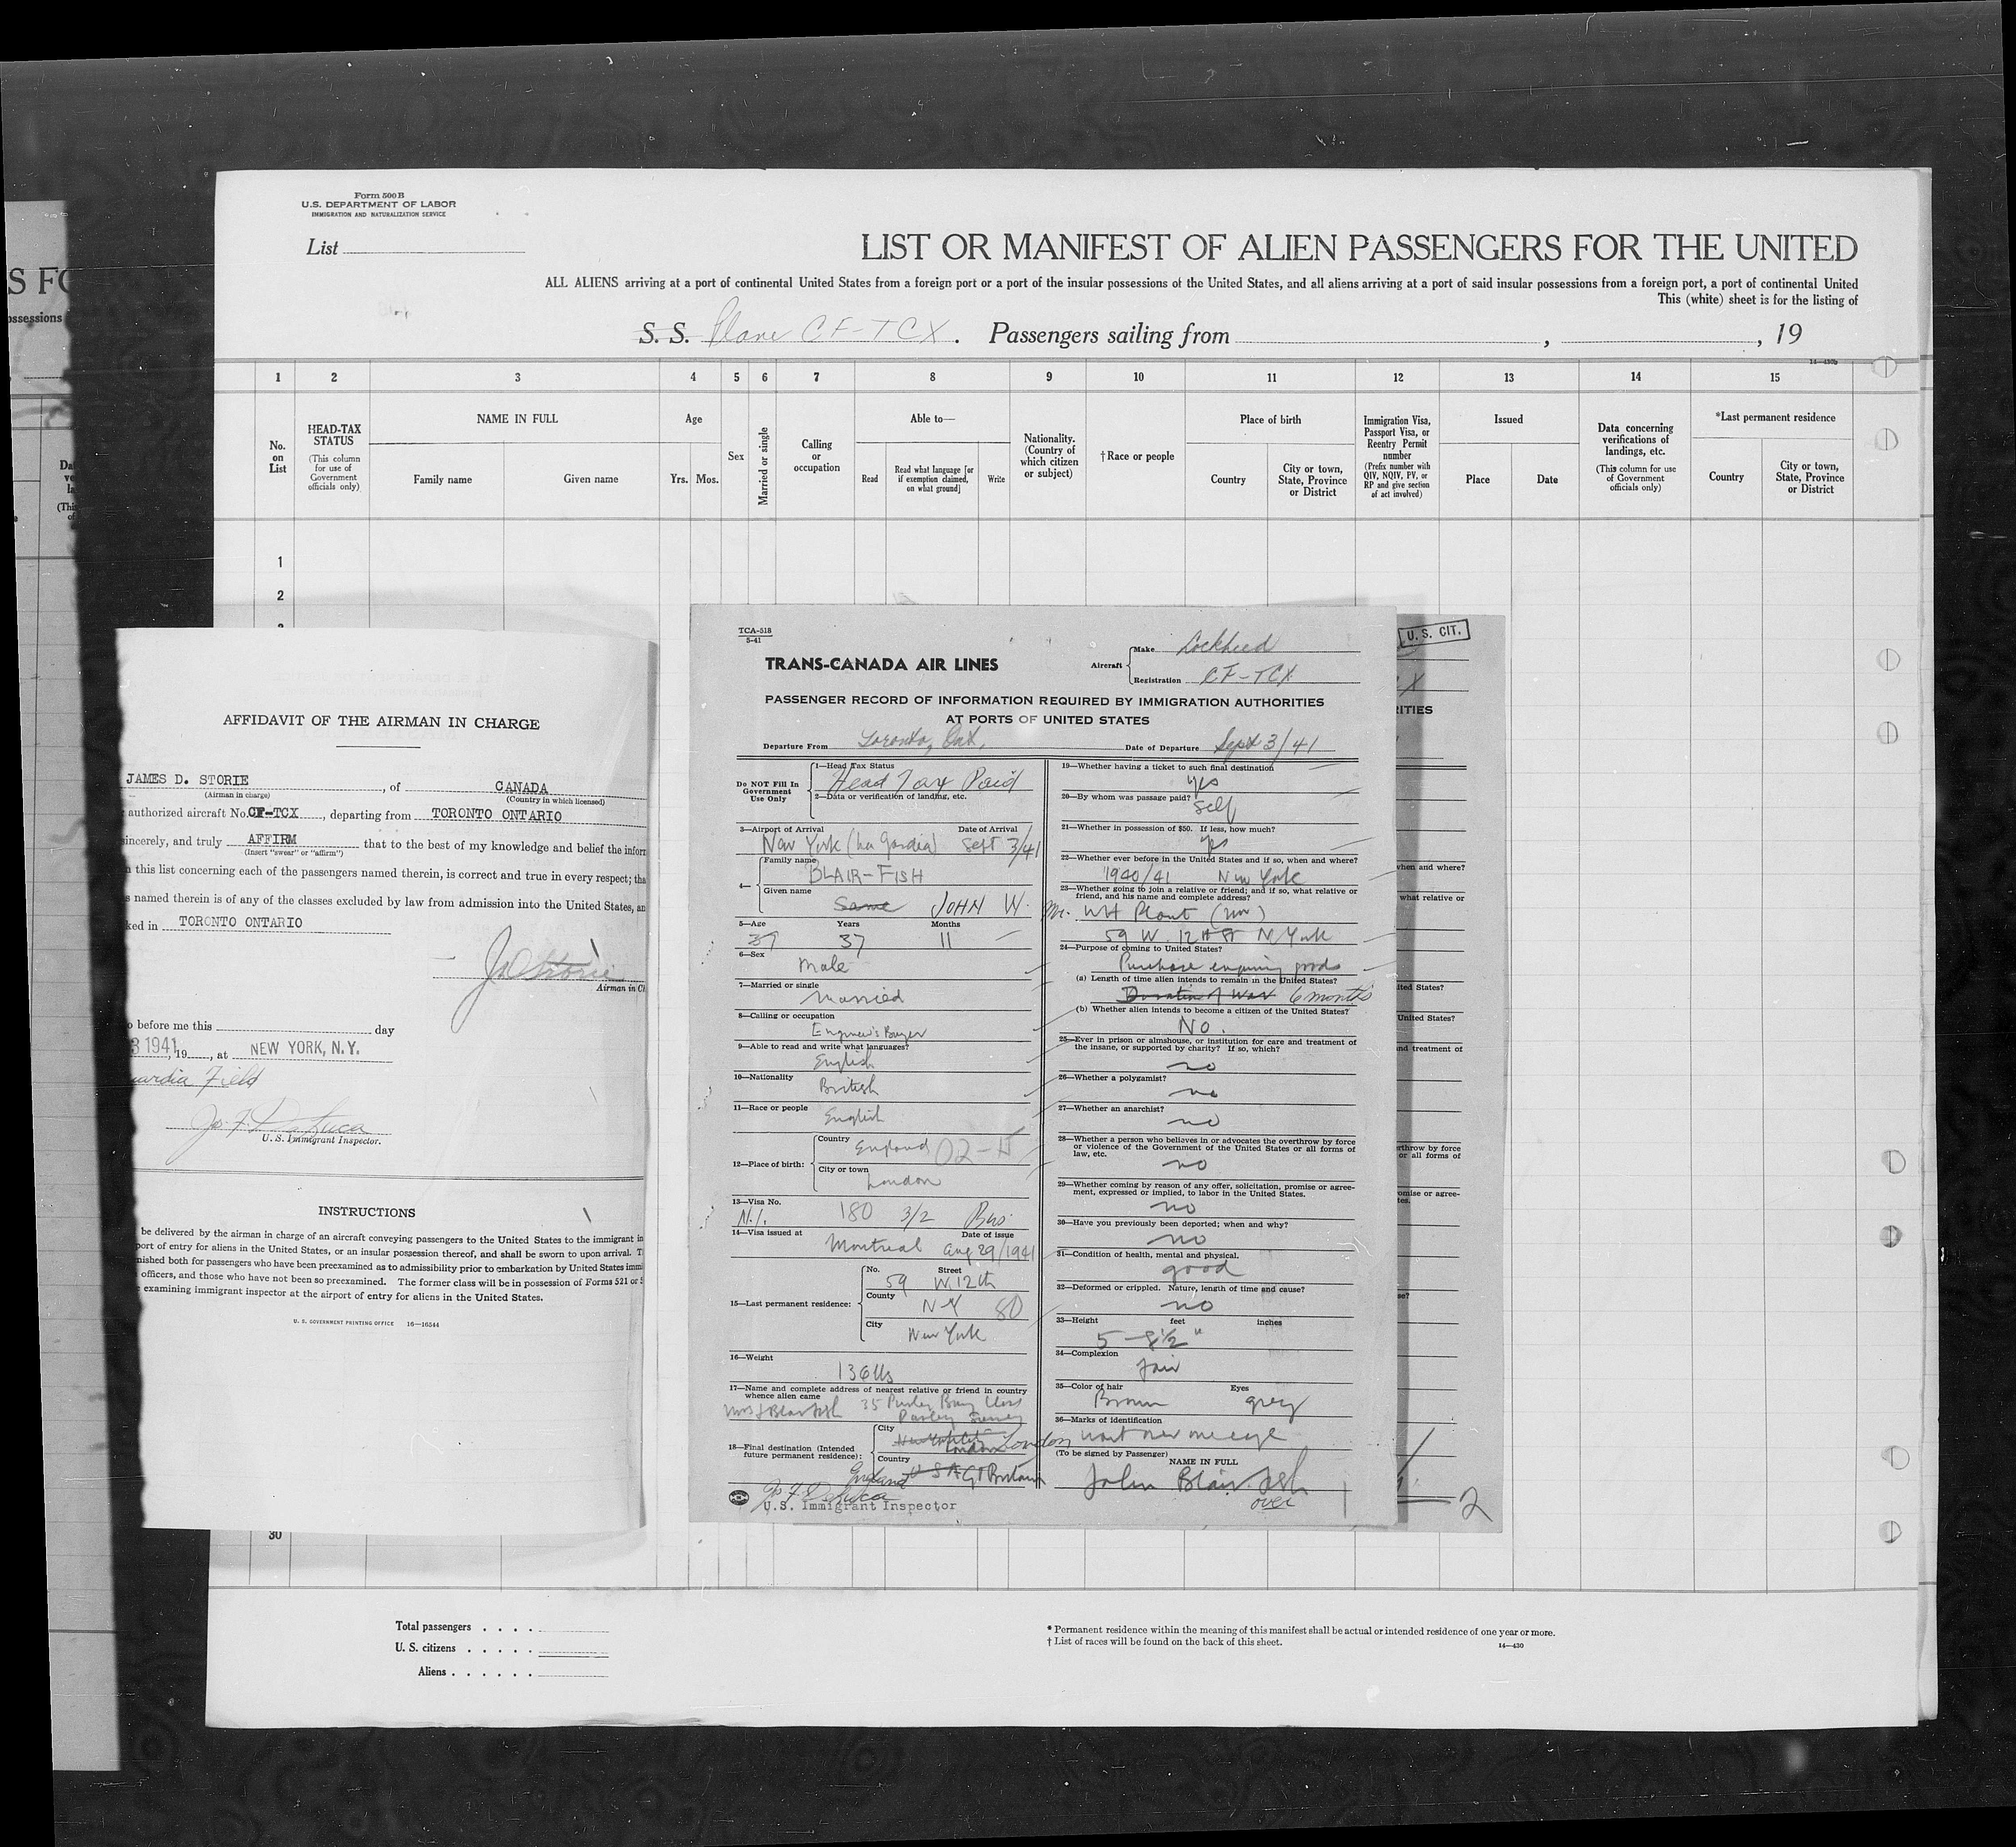 S FO
ossessions
Form 500 B
U.S. DEPARTMENT OF LABOR
IMMIGRATION AND NATURALIZATION SERVICE
List
LIST OR MANIFEST OF ALIEN PASSENGERS FOR THE UNITED
ALL ALIENS arriving at a port of continental United States from a foreign port or a port of the insular possessions of the United States, and all aliens arriving at a port of said insular possessions from a foreign port, a port of continental United
This (white) sheet is for the listing of
S. S. Plane CF-TCX. Passengers sailing from , , 19
14—430b
1 2 3 4 5 6 7 8 9 10 11 12 13 14 15
No. on List
HEAD-TAX STATUS
(This column for use of Government officials only)
NAME IN FULL
Family name
Given name
Age
Yrs. Mos.
Sex
Married or single
Calling or occupation
Able to—
Read
Read what language [or if exemption claimed, on what ground]
Write
Nationality. (Country of which citizen or subject)
† Race or people
Place of birth
Country
City or town, State, Province or District
Immigration Visa, Passport Visa, or Reentry Permit number
(Prefix number with QIV, NQIV, PV, or RP and give section of act involved)
Issued
Place
Date
Data concerning verifications of landings, etc.
(This column for use of Government officials only)
*Last permanent residence
Country
City or town, State, Province or District
1
2
AFFIDAVIT OF THE AIRMAN IN CHARGE
JAMES D. STORIE , of CANADA
(Airman in charge) (Country in which licensed)
authorized aircraft No. CF-TCX , departing from TORONTO ONTARIO
incerely, and truly AFFIRM that to the best of my knowledge and belief the infor
(Insert "swear" or "affirm")
n this list concerning each of the passengers named therein, is correct and true in every respect; tha
s named therein is of any of the classes excluded by law from admission into the United States, an
ked in TORONTO ONTARIO
J D Storie
Airman in Ch
o before me this day
3 1941, 19 , at NEW YORK, N.Y.
uardia Field
Jos. F. DeLuca
U. S. Immigrant Inspector.
INSTRUCTIONS
be delivered by the airman in charge of an aircraft conveying passengers to the United States to the immigrant in
port of entry for aliens in the United States, or an insular possession thereof, and shall be sworn to upon arrival. T
nished both for passengers who have been preexamined as to admissibility prior to embarkation by United States immi
officers, and those who have not been so preexamined. The former class will be in possession of Forms 521 or 5
examining immigrant inspector at the airport of entry for aliens in the United States.
U. S. GOVERNMENT PRINTING OFFICE 16—16544
30
TCA-518
5-41
TRANS-CANADA AIR LINES
Aircraft
Make Lockheed
Registration CF-TCX
PASSENGER RECORD OF INFORMATION REQUIRED BY IMMIGRATION AUTHORITIES
AT PORTS OF UNITED STATES
Departure From Toronto, Ont. Date of Departure Sept 3/41
Do NOT Fill In Government Use Only
1—Head Tax Status
Head Tax Paid
2—Data or verification of landing, etc.
3—Airport of Arrival Date of Arrival
New York (La Gardia) Sept 3/41
4—
Family name
BLAIR-FISH
Given name
Same JOHN W.
5—Age Years Months
37 37 11
6—Sex
Male
7—Married or single
Married
8—Calling or occupation
Engineer's Buyer
9—Able to read and write what languages?
English
10—Nationality
British
11—Race or people
English
12—Place of birth:
Country
England 02-
City or town
London
13—Visa No.
N.I. 180 3/2 Bus
14—Visa issued at Date of issue
Montreal Aug 29/1941
15—Last permanent residence:
No. Street
59 W. 12th
County
N Y 80
City
New York
16—Weight
136 lbs
17—Name and complete address of nearest relative or friend in country
whence alien came
Mrs J Blairfish 35 Purley Bury Close
Purley Surrey
18—Final destination (Intended future permanent residence):
City
New York City London London
Country
England U S A Gt Britain
Jos F DeLuca
U.S. Immigrant Inspector
19—Whether having a ticket to such final destination
yes
20—By whom was passage paid?
Self
21—Whether in possession of $50. If less, how much?
yes
22—Whether ever before in the United States and if so, when and where?
1940/41 New York
23—Whether going to join a relative or friend; and if so, what relative or
friend, and his name and complete address?
Mr. WH Plant
59 W. 12th St N. York
24—Purpose of coming to United States?
Purchase goods
(a) Length of time alien intends to remain in the United States?
Duration of War 6 months
(b) Whether alien intends to become a citizen of the United States?
No.
25—Ever in prison or almshouse, or institution for care and treatment of
the insane, or supported by charity? If so, which?
no
26—Whether a polygamist?
no
27—Whether an anarchist?
no
28—Whether a person who believes in or advocates the overthrow by force
or violence of the Government of the United States or all forms of
law, etc.
no
29—Whether coming by reason of any offer, solicitation, promise or agree-
ment, expressed or implied, to labor in the United States.
no
30—Have you previously been deported; when and why?
no
31—Condition of health, mental and physical.
good
32—Deformed or crippled. Nature, length of time and cause?
no
33—Height feet inches
5 - 8 1/2"
34—Complexion
fair
35—Color of hair Eyes
Brown grey
36—Marks of identification
wart over one eye
(To be signed by Passenger)
NAME IN FULL
John Blair-fish
over
U. S. CIT.
X
RITIES
hen and where?
what relative or
ited States?
United States?
nd treatment of
rthrow by force
or all forms of
omise or agree-
tes.
se?
2
Total passengers . . . .
U. S. citizens . . . . .
Aliens . . . . . .
* Permanent residence within the meaning of this manifest shall be actual or intended residence of one year or more.
† List of races will be found on the back of this sheet.
14—430